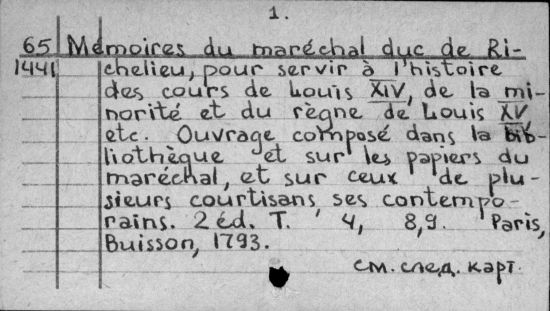 1.
65 Mémoires du maréchal duc de Ri-
1441 chelieu, pour servir à l'histoire
des cours de Louis XIV, de la mi-
norité et du règne de Louis XV,
etc. Ouvrage composé dans la bib-
liothèque et sur les papiers du
maréchal, et sur ceux de plu-
sieurs courtisans ses contempo-
rains. 2 éd. T. 4, 8,9. Paris,
Buisson, 1793.
см. след. карт.